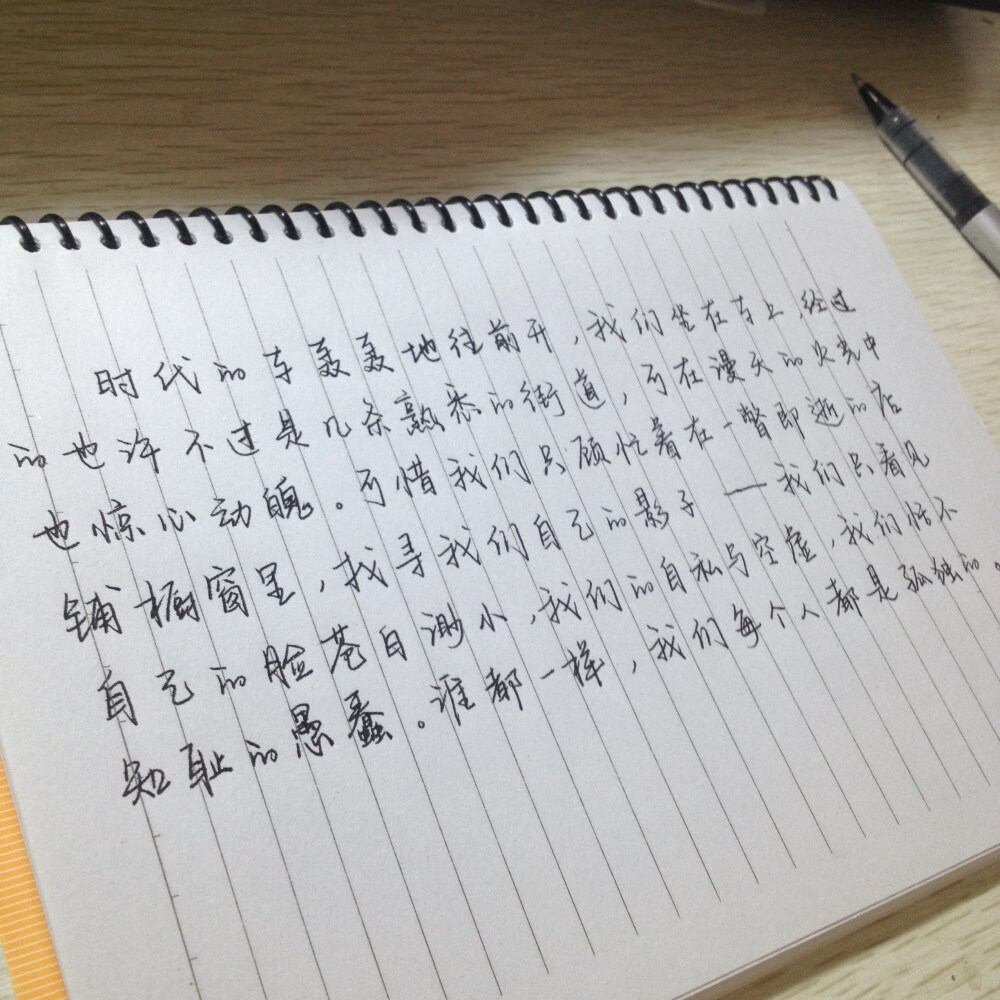 时代的车轰轰地往前开，我们坐在车上，经过
的也许不过是几条熟悉的街道，可在漫天的火光中
也惊心动魄。可惜我们只顾忙着在一瞥即逝的店
铺橱窗里，找寻我们自己的影子——我们只看见
自己的脸苍白渺小，我们的自私与空虚，我们恬不
知耻的愚蠢。谁都一样，我们每个人都是孤独的。